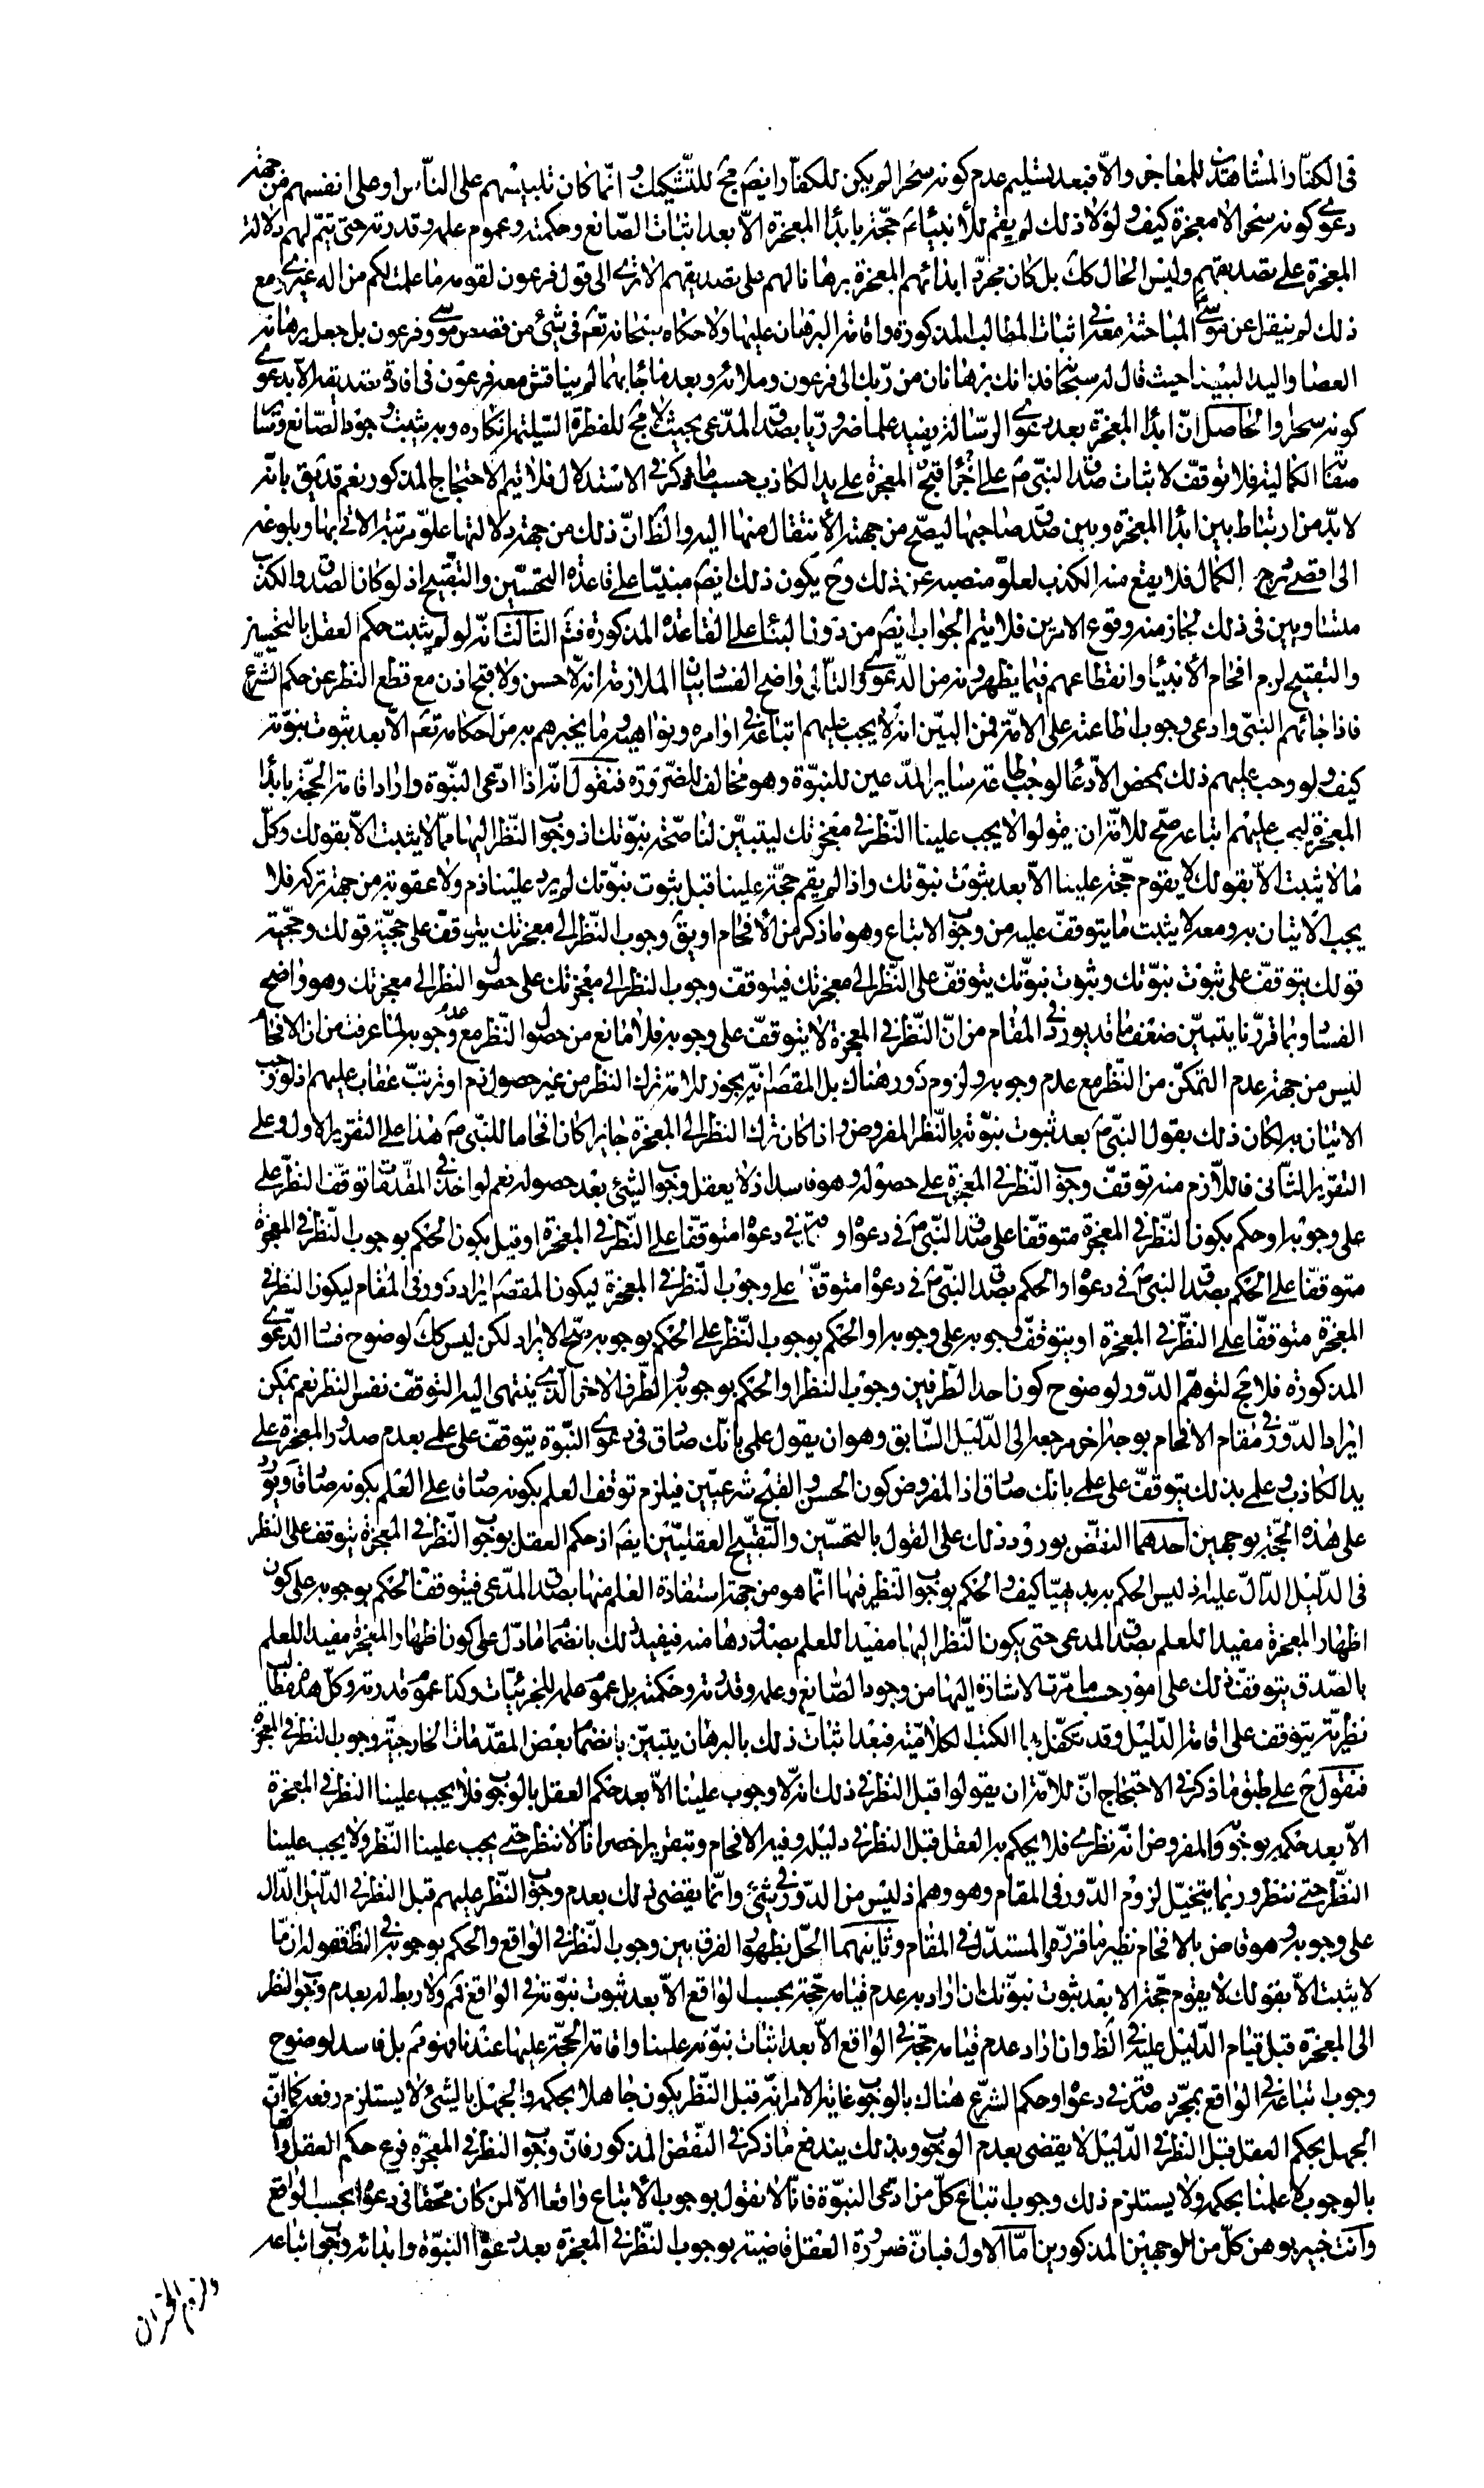 فى الكفار المشاهدين للمعاجز والا فبعد تسليم عدم كونه سحرا لم يكن للكفار ايضا مح للتشكيك وانما كان تلبيسهم على الناس او على انفسهم من جهة
دعوى كونه سحرا لا معجزة كيف ولولا ذلك لم يقم للأنبياء حجة بابداء المعجزة الا بعد اثبات الصانع وحكمته وعموم علمه وقدرته حتى يتم لهم دلالة
المعجزة على تصديقهم وليس الحال كك بل كان مجرد ابدائهم المعجزة برهانا لهم على تصديقهم الا ترى الى قول فرعون لقومه ما علمت لكم من اله غيرى ومع
ذلك لم ينقل عن موسى المباحثة معه فى اثبات المطالب المذكورة واقامة البرهان عليها ولا حكاه سبحانه تعم فى شئ من قصص موسى وفرعون بل جعل برهانه
العصا واليد البيضا حيث قال له سبحانه فذانك برهانان من ربك الى فرعون وملائه وبعد ما جا بهما لم يناقش معه فرعون فى افادة تصديقه الا بدعوى
كونه سحرا والحاصل ان ابداء المعجزة بعد دعوى الرسالة يفيد علما ضروريا بصدق المدعى بحيث لا مح للفطرة السليمة انكاره وبه يثبت وجود الصانع وسائر
صفاته الكمالية فلا توقف لاثبات صدق النبى ص على اجراء قبح المعجزة على يد الكاذب حسب ما ذكر فى الاستدلال فلا يتم الاحتجاج المذكور نعم قد يق بانه
لا بد من ارتباط بين ابداء المعجزة وبين صدق صاحبها ليصح من جهته الأنتقال منها اليه والظ ان ذلك من جهة دلالتها علو مرتبة الاتى بها وبلوغه
الى اقصى درج الكمال فلا يقع منه الكذب لعلو منصبه عن ذلك وح يكون ذلك ايضا مبنيا على قاعدة التحسين والتقبيح اذ لو كان الصدق والكذب
متساويين فى ذلك لجاز منه وقوع الامرين فلا يتم الجواب ايضا من دون البناء على القاعدة المذكورة فتم الثالث انه لو لم يثبت حكم العقل بالتحسين
والتقبيح لزم افحام الأنبياء وانقطاعهم فيما يظهرونه من الدعوى والتالى واضح الفساد بيان الملازمة انه لا حسن ولا قبح اذن مع قطع النظر عن حكم الشرع
فاذا جائهم النبى وادعى وجوب اطاعته على الامة فمن البين انه لا يجب عليهم اتباعه فى اوامره ونواهيه وما يخبرهم به من احكامه تعم الا بعد ثبوت نبوته
كيف ولو وجب عليهم ذلك بمحض الادعا لوجب اطاعة سائر المدعين للنبوة وهو مخالف للضرورة فنقول انه اذا ادعى النبوة واراد اقامة الحجة بابداء
المعجزة ليجب عليهم اتباعه صح للامة ان يقولوا لا يجب علينا النظر فى معجزتك ليتبين لنا صحة نبوتك اذ وجوب النظر اليها مما لا يثبت الا بقولك وكل
ما لا يثبت الا بقولك لا يقوم حجة علينا الا بعد ثبوت نبوتك واذا لم يقم حجة علينا قبل ثبوت نبوتك لم يرد علينا ذم ولا عقوبة من جهة تركه فلا
يجب الاتيان به ومعه لا يثبت ما يتوقف عليه من وجوب الاتباع وهو ما ذكر من الأفحام او يق وجوب النظر الى معجزتك يتوقف على حجية قولك وحجية
قولك يتوقف على ثبوت نبوتك وثبوت نبوتك يتوقف على النظر الى معجزتك فيتوقف وجوب النظر الى معجزتك على حصول النظر الى معجزتك وهو واضح
الفساد وبما قررنا يتبين ضعف ما قد يورد فى المقام من ان النظر فى المعجزة لا يتوقف على وجوبه فلا مانع من حصول النظر مع عدم وجوبه لما عرفت من ان الافحام
ليس من جهة عدم التمكن من النظر مع عدم وجوبه ولزوم دور هناك بل المقصد انه يجوز للامة ترك النظر من غير حصول ذم او ترتب عقاب عليهم اذ لو وجب
الاتيان به لكان ذلك بقول النبى ص بعد ثبوت نبوته بالنظر المفروض واذا كان ترك النظر الى المعجزة جايزا كان افحاما للنبى ص هذا على التقرير الاول وعلى
التقرير الثانى فاللازم منه توقف وجوب النظر فى المعجزة على حصوله وهو فاسد اذ لا يعقل وجوب الشئ بعد حصوله نعم لو اخذ فى المقدمات توقف النظر على
على وجوبه او حكم بكون النظر فى المعجزة متوقفا على صدق النبى ص فى دعواه و فى دعواه متوقفا على النظر فى المعجزة او قيل بكون الحكم بوجوب النظر فى المعجزة
متوقفا على الحكم بصدق النبى ص فى دعواه والحكم بصدق النبى ص فى دعواه متوقف على وجوب النظر فى المعجزة ليكون المقصد ايراد دور فى المقام ليكون النظر فى
المعجزة متوقفا على النظر فى المعجزة او يتوقف وجوبه على وجوبه او الحكم بوجوب النظر على الحكم بوجوبه صح الايراد لكن ليس كك لوضوح فساد الدعوى
المذكورة فلا مح لتوهم الدور لوضوح كون احد الطرفين وجوب النظر او الحكم بوجوبه والطرف الاخر الذى ينتهى اليه التوقف نفس النظر نعم يمكن
ايراد الدور فى مقام الافحام بوجه اخر مرجعه الى الدليل السابق وهو ان يقول علمى بانك صادق فى دعوى النبوة يتوقف على علمى بعدم صدور المعجزة على
يد الكاذب وعلمى بذلك يتوقف على علمى بانك صادق اذ المفروض كون الحسن والقبح شرعيين فيلزم توقف العلم بكونه صادقا على العلم بكونه صادقا ويورد
على هذه الحجة بوجهين احدهما النقض بورود ذلك على القول بالتحسين والتقبيح العقليين ايضا اذ حكم العقل بوجوب النظر فى المعجزة يتوقف على النظر
فى الدليل الدال عليه اذ ليس الحكم به بديهيا كيف والحكم بوجوب النظر فيها انما هو من جهة استفادة العلم منها بصدق المدعى فيتوقف الحكم بوجوبه على كون
اظهار المعجزة مفيدا للعلم بصدق المدعى حتى يكون النظر اليها مفيدا للعلم بصدورها منه فيفيد ذلك بانضمام ما دل على كون اظهار المعجزة مفيدا للعلم
بالصدق يتوقف ذلك على امور حسب ما مرت الاشارة اليها من وجود الصانع وعلمه وقدرته وحكمته بل عموم علمه للجزئيات وكذا عموم قدرته وكل هذه مطالب
نظرية يتوقف على اقامة الدليل وقد تكفل بها الكتب الكلامية فبعد اثبات ذلك بالبرهان يتبين بانضمام بعض المقدمات الخارجية وجوب النظر فى المعجزة
فنقول ح على طبق ما ذكر فى الاحتجاج ان للامة ان يقولوا قبل النظر فى ذلك انه لا وجوب علينا الا بعد حكم العقل بالوجوب فلا يجب علينا النظر فى المعجزة
الا بعد حكمه بوجوبه والمفروض انه نظرى فلا يحكم به العقل قبل النظر فى دليله وفيه الافحام وبتقرير اخصر انا لا ننظر حتى يجب علينا النظر ولا يجب علينا
النظر حتى ننظر وربما يتخيل لزوم الدور فى المقام وهو وهم اذ ليس من الدور فى شئ وانما يقضى ذلك بعدم وجوب النظر عليهم قبل النظر فى الدليل الدال
على وجوبه وهو قاض بالافحام نظير ما قرره المستدل فى المقام وثانيهما الحل بظهور الفرق بين وجوب النظر فى الواقع والحكم بوجوبه فى الظ فقوله ان ما
لا يثبت الا بقولك لا يقوم حجة الا بعد ثبوت نبوتك ان اراد به عدم قيامه حجة بحسب الواقع الا بعد ثبوت نبوته فى الواقع فتم ولا ربط له بعدم وجوب النظر
الى المعجزة قبل قيام الدليل عليه فى الظ وان اراد عدم قيامه حجة فى الواقع الا بعد اثبات نبوته علينا واقامة الحجة عليها عندنا فهو مم بل فاسد لوضوح
وجوب اتباعه فى الواقع بمجرد صدقه فى دعواه وحكم الشرع هناك بالوجوب غاية الامر انه قبل النظر يكون جاهلا بحكمه والجهل بالشئ لا يستلزم رفعه كما ان
الجهل بحكم العقل قبل النظر فى الدليل لا يقضى بعدم الوجوب وبذلك يندفع ما ذكر فى النقض المذكور فان وجوب النظر فى المعجزة فرع حكم العقل واقعا
بالوجوب لا علمنا بحكمه ولا يستلزم ذلك وجوب اتباع كل من ادعى النبوة فانا لا نقول بوجوب الأتباع واقعا الا لمن كان محقا فى دعواه بحسب الواقع
وانت خبير بوهن كل من الوجهين المذكورين اما الاول فبان ضرورة العقل قاضية بوجوب النظر فى المعجزة بعد دعوى النبوة وابدائه وجوب اتباعه